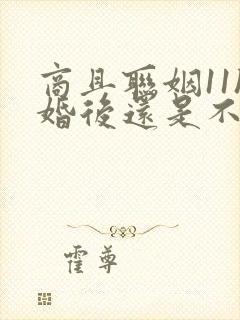 商且聯姻11
婚後還是不
霍尊